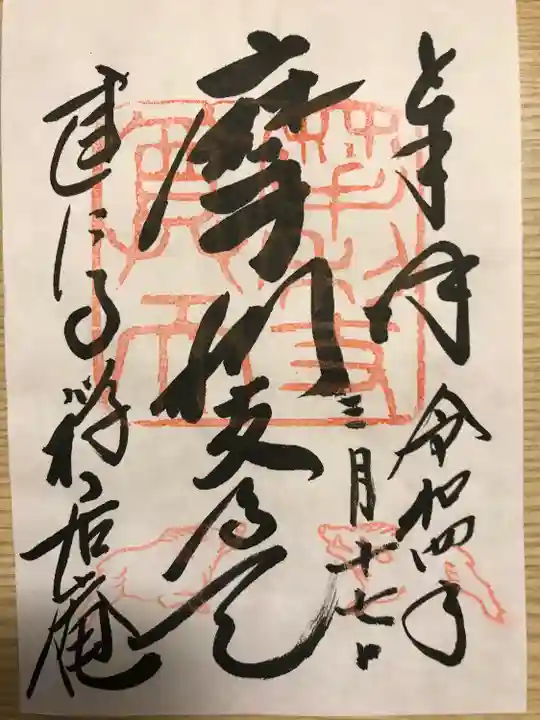 奉拝 令和四年
三月十七日
摩利支尊天
建仁寺 禅居庵